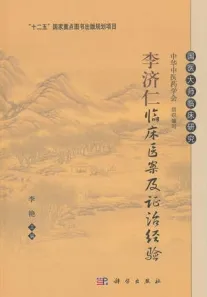 “十二五”国家重点图书出版规划项目
国医大师临床研究
中华中医药学会 组织编写
李济仁临床医案及证治经验
李艳 主编
科学出版社